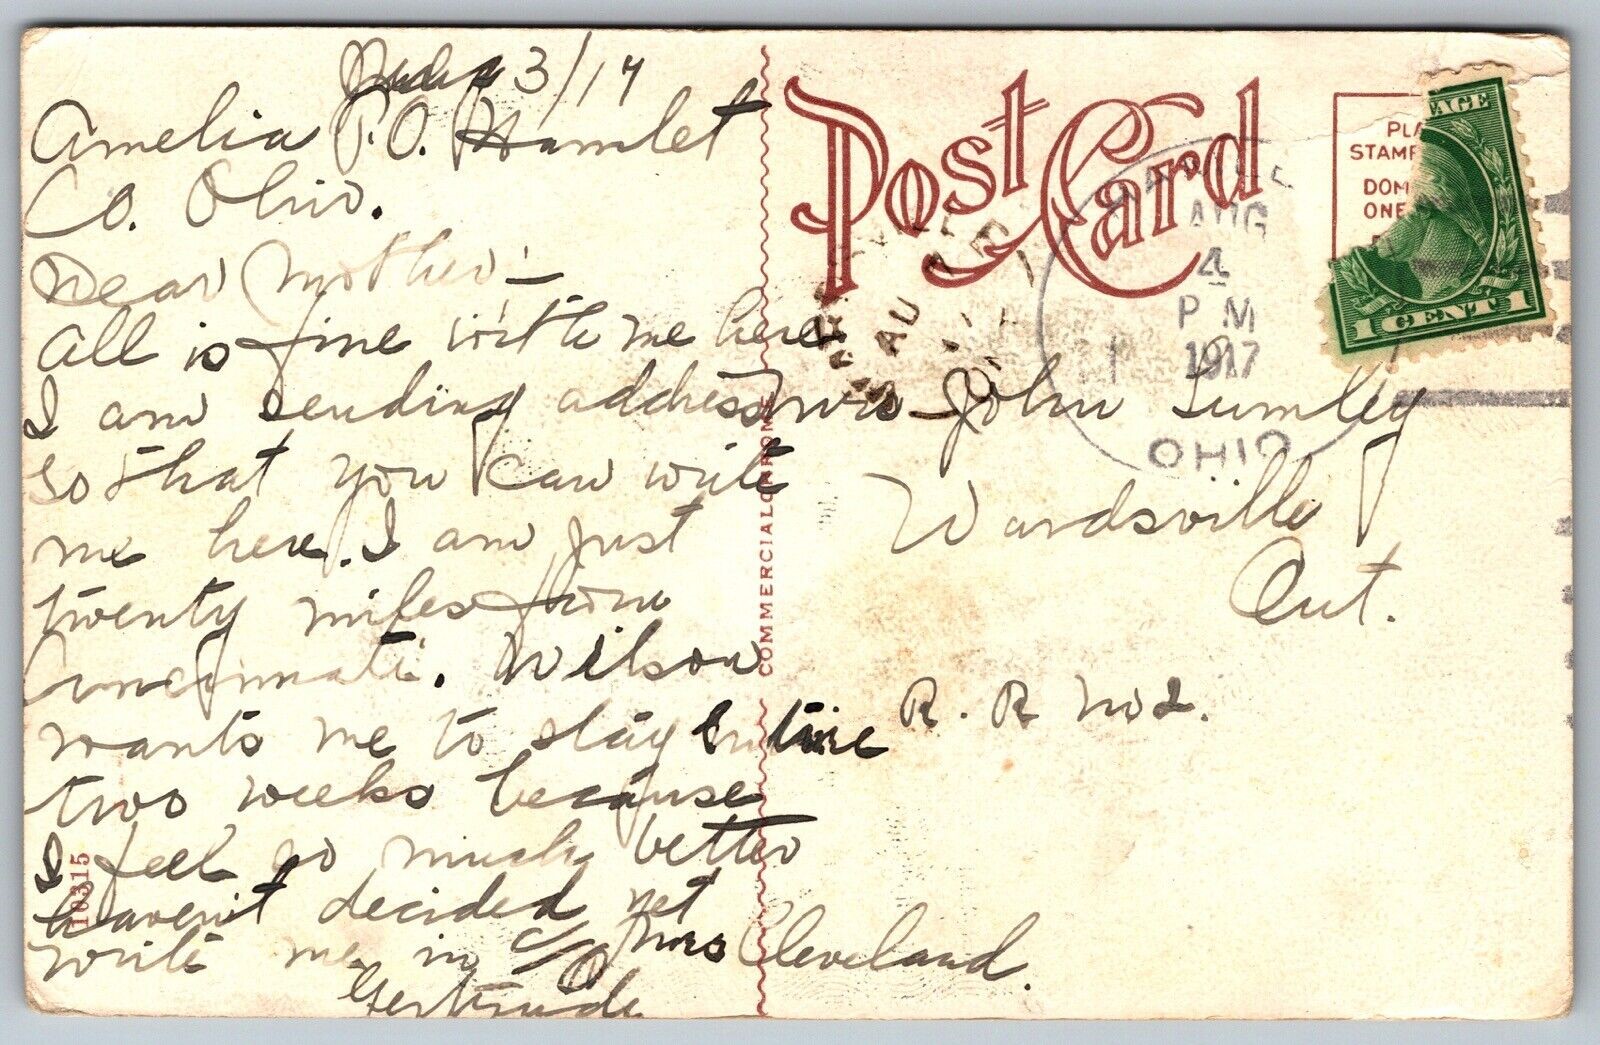 3/17
Amelia P.O. Hamlet
Co. Ohio.
Dear Mother:-
All is fine with me here
I am sending address
so that you can write
me here. I am just
twenty miles from
Cincinnati. Wilson
wants me to stay entire
two weeks because
I feel so much better
haven't decided yet
write me in c/o Mrs Cleveland.
Gertrude
10315
COMMERCIALCHROME
Post Card
AUG
4
P M
1917
OHIO
AU
PLA
STAMP
DOM
ONE
AGE
1 CENT 1
Mrs John Lumley
Wardsville
Ont.
R. R No 2.